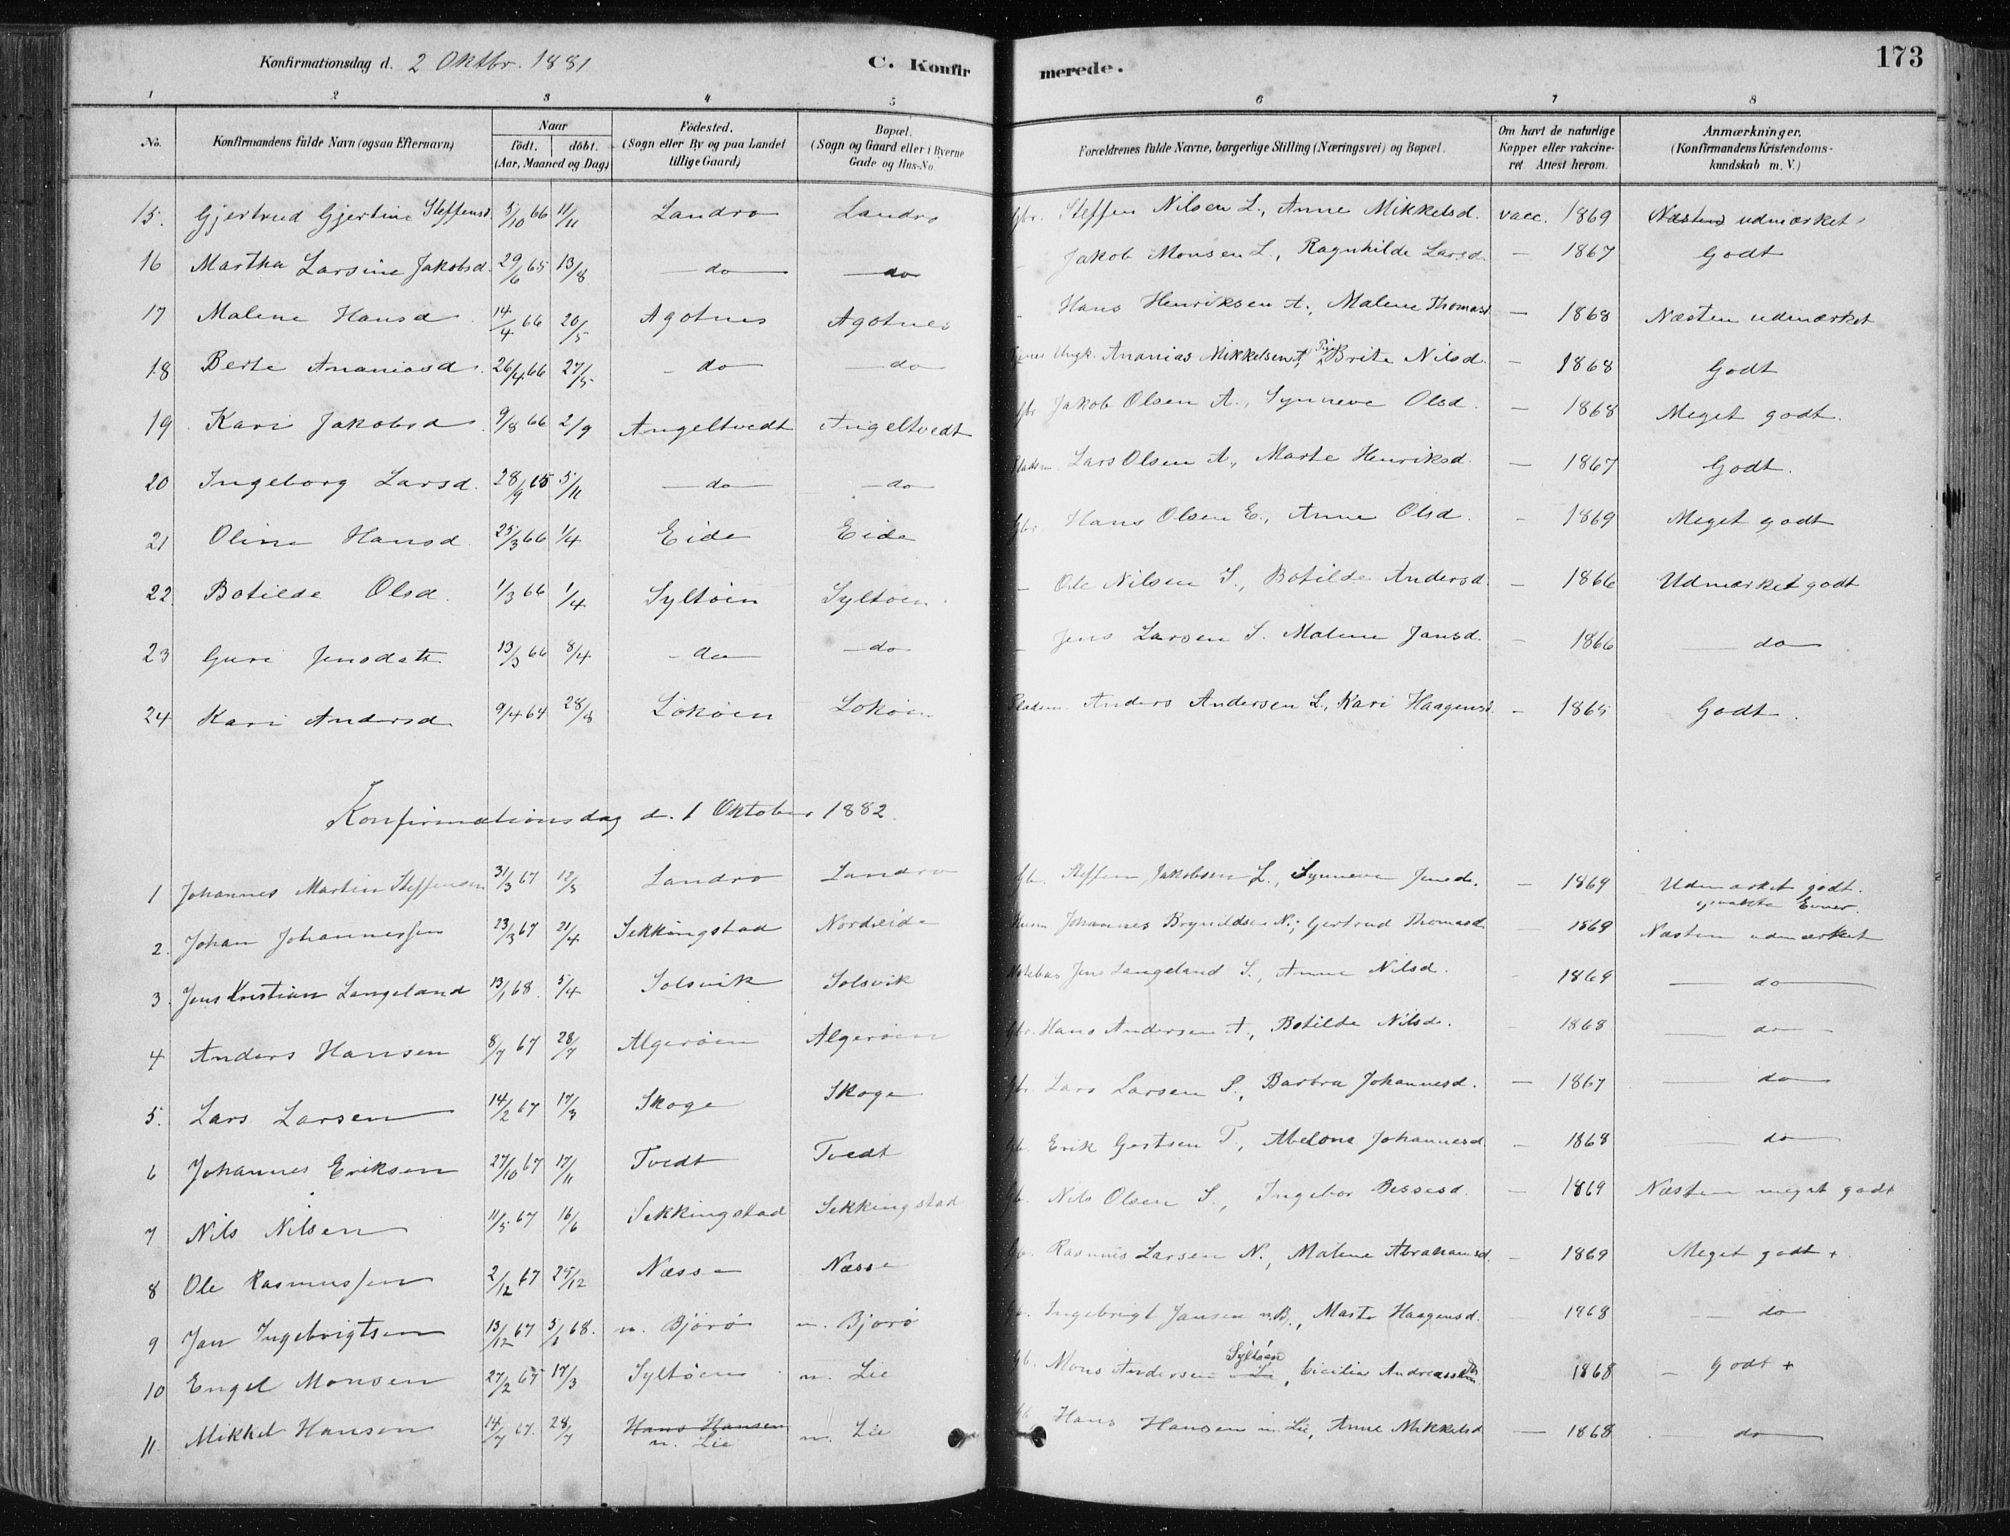 Konfirmationsdag d. 2 Oktbr. 1881 C. Konfirmerede. 173
1 2 3 4 5 6 7 8
No. Konfirmandens fulde Navn (ogsaa Efternavn) Naar født. døbt. (Aar, Maaned og Dag) Fødested. (Sogn eller By og paa Landet tillige Gaard) Bopæl. (Sogn og Gaard eller i Byerne Gade og Hus-No. Forældrenes fulde Navne, borgerlige Stilling (Næringsvei) og Bopæl. Om havt de naturlige Kopper eller vakcineret. Attest herom. Anmærkninger. (Konfirmandens Kristendomskundskab m. V.)
15. Gjertrud Gjertine Steffensd. 5/10 66 11/11 Landro Landro Gbr. Steffen Nilsen L., Anne Mikkelsd. vacc. 1869 Næsten udmærket
16 Martha Larsine Jakobsd. 29/6 65 13/8 do do Jakob Monsen L., Ragnhilde Larsd. — 1867 Godt
17 Malene Hansd. 14/4 66 20/5 Agotnes Agotnes Hans Henriksen A., Malene Thomasd — 1868 Næsten udmærket
18 Berte Ananiasd. 26/4 66 27/5 do do Ungk. Ananias Mikkelsen A, Pige Brite Nilsd. — 1868 Godt
19. Kari Jakobsd. 9/8 66 2/9 Angeltvedt Angeltvedt Gbr Jakob Olsen A., Synneve Olsd. — 1868 Meget godt.
20 Ingeborg Larsd. 28/9 65 5/11 do do Pladsm. Lars Olsen A., Marte Henriksd. — 1867 Godt.
21 Oline Hansd. 25/3 66 1/4 Eide Eide Gbr Hans Olsen E., Anne Olsd. — 1869 Meget godt
22 Botilde Olsd. 1/3 66 1/4 Syltøen Syltøen. — Ole Nilsen S., Botilde Andersd. — 1866 Udmærket godt
23 Guri Jensdatt 13/3 66 8/4 do do — Jens Larsen S. Malene Jansd. — 1866 do
24 Kari Andersd. 9/4 64 28/8 Lokøen Lokøen Pladsm. Anders Andersen L., Kari Haagensd. — 1865 Godt.
Konfirmationsdag d. 1 Oktober 1882.
1 Johannes Martin Steffensen 31/3 67 12/5 Landro Landro Gb. Steffen Jakobsen L., Synneve Jensd. — 1869 Udmærket godt.
Evner.
2. Johan Johannessen 23/3 67 21/4 Sekkingstad Nordeide Husm Johannes Brynildsen N., Gertrud Thomasd. 1869 Næsten udmærket
3. Jens Kristian Langeland 13/1 68. 5/4 Solsvik Solsvik Jens Langeland S., Anne Nilsd. — 1869 do
4 Anders Hansen 8/7 67 28/7 Algerøen Algerøen Gbr. Hans Andersen A, Botilde Nilsd. — 1868 do
5. Lars Larsen 14/2 67 17/3 Skoge Skoge Gbr. Lars Larsen S., Barbra Johannesd. — 1867 do
6 Johannes Eriksen 27/10 67 17/11 Tvedt Tvedt Gb. Erik Gertsen T., Abelone Johannesd. — 1868 do
7 Nils Nilsen 11/5 67 16/6 Sekkingstad Sekkingstad Gb. Nils Olsen S., Ingebor Bessesd. — 1869 Næsten meget godt
8 Ole Rasmussen 2/12 67 25/12 Næsse Næsse Gb. Rasmus Larsen N., Malene Abrahamsd. — 1869 Meget godt +
9 Jan Ingebrigtsen 13/12 67 5/1 68. n. Bjorø n. Bjorø Gb. Ingebrigt Jansen n. B., Marte Haagensd. — 1868 do
10 Engel Monsen 27/2 67 17/3 Syltøen n. Lie Gb. Mons Andersen Syltøen, Cicilia Andreasdtr 1868 Godt +
11. Mikkel Hansen 14/7 67. 28/7 Hans Hansen n. Lie n. Lie Gb Hans Hansen n. Lie, Anne Mikkelsd — 1868 do